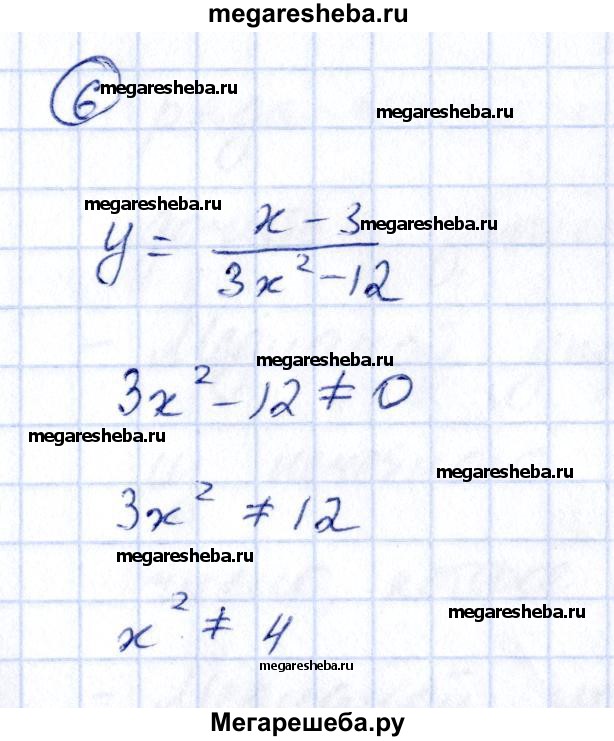 megaresheba.ru
6 megaresheba.ru
megaresheba.ru
y = x - 3 / 3x² - 12 megaresheba.ru
megaresheba.ru
3x² - 12 ≠ 0
megaresheba.ru
megaresheba.ru
3x² ≠ 12
megaresheba.ru
megaresheba.ru
x² ≠ 4
megaresheba.ru
Мегарешеба.ру